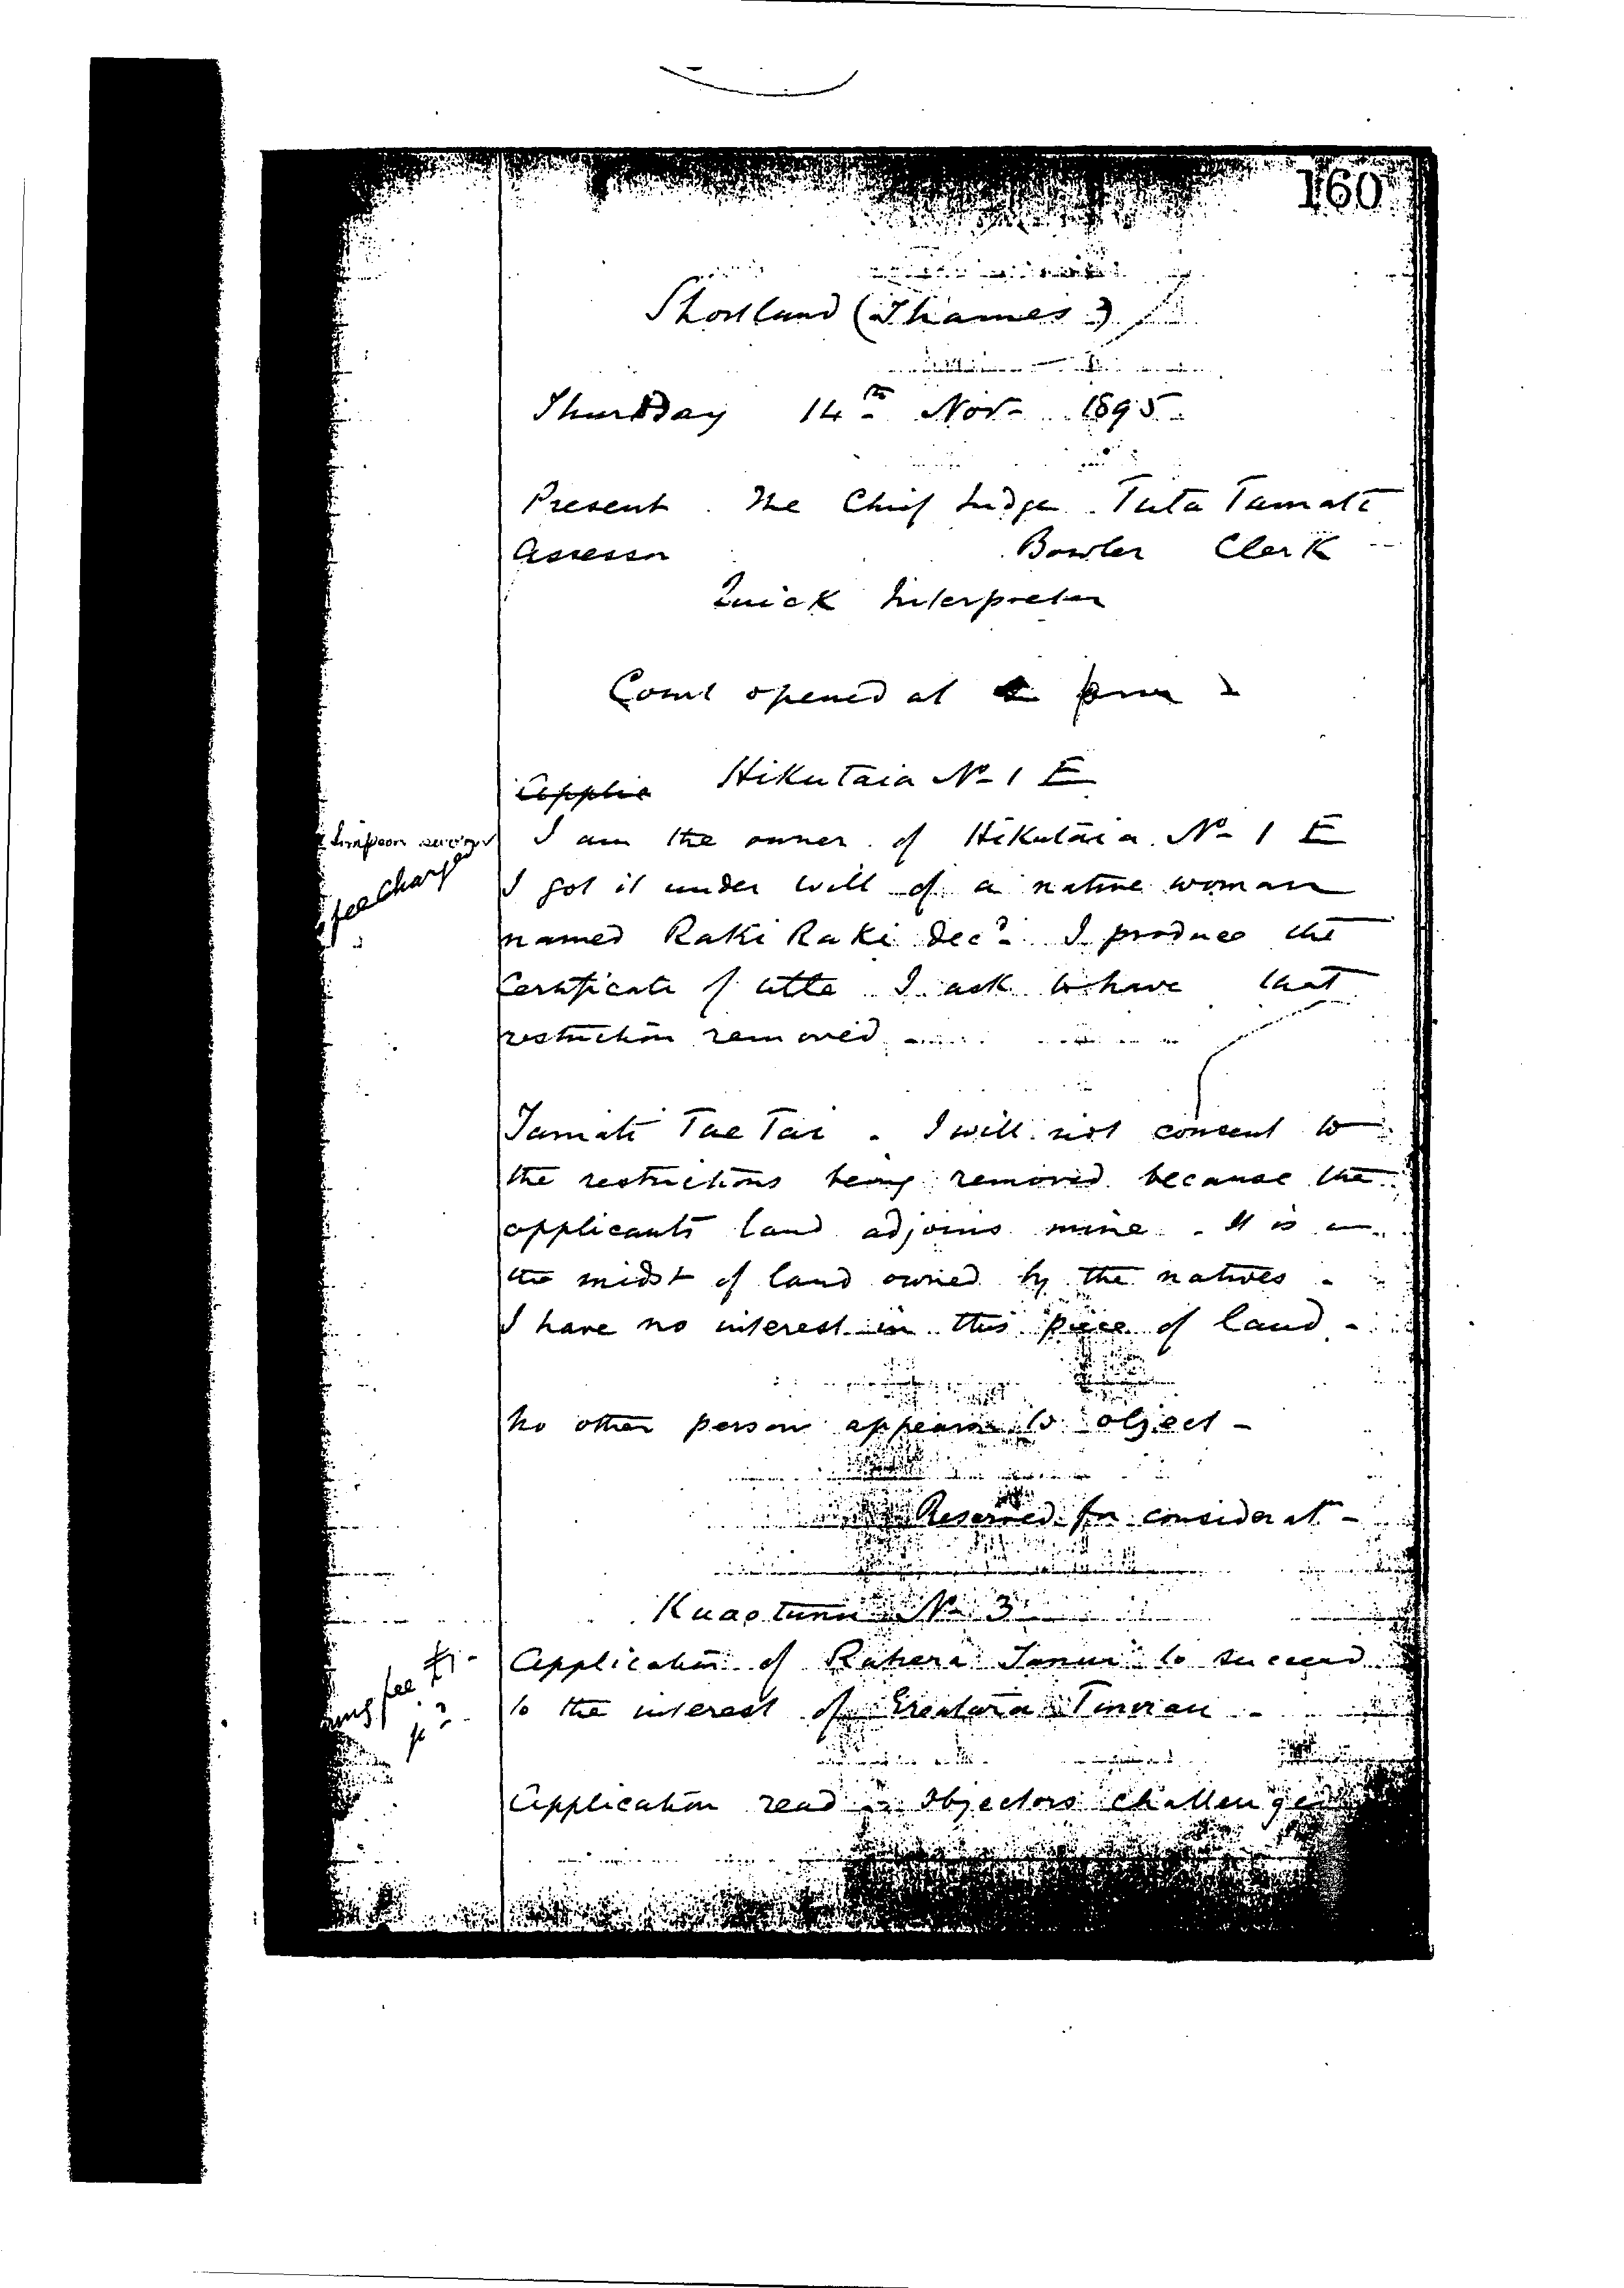 160
Shortland (Thames)
Thursday 14th Nov 1895
Present. The Chief Judge. Tuta Tamati
Assessor Bowler Clerk
Quick Interpreter
Court opened at
Applic Hikutaia No 1 E
Simpson sworn I am the owner of Hikutaia No 1 E
fee charge I got it under will of a native woman
named Raki Raki decd. I produce the
Certificate of title I ask to have that
restriction removed
Tamati Tae Tai. I will not consent to
the restrictions being removed because the
applicants land adjoins mine. It is in
the midst of land owned by the natives -
I have no interest in this piece of land -
No other person appears to object -
Reserved for considerat -
Kuaotunu No 3
fee £1 - Application of Rahera to succeed
to the interest of
Application read - objectors challenged